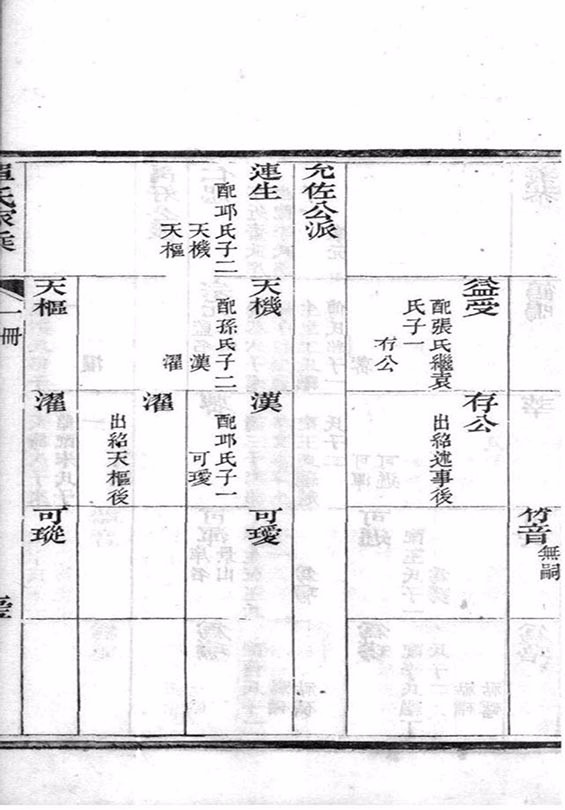 竹音
無嗣
益受
配張氏繼袁
氏子一
存公
存公
出紹述事後
允佐公派
連生
配邛氏子二
天機
天樞
天機
配孫氏子二
漢
濯
漢
配邛氏子一
可璦
可璦
濯
出紹天樞後
天樞
濯
可瑽
氏家乘
一冊